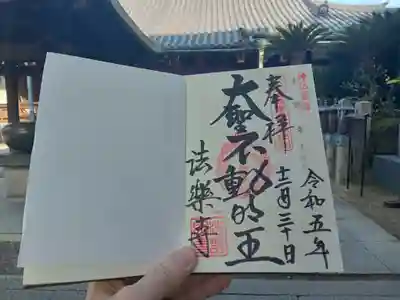 令和五年
奉拝
十二月三十日
大聖不動明王
法樂寺